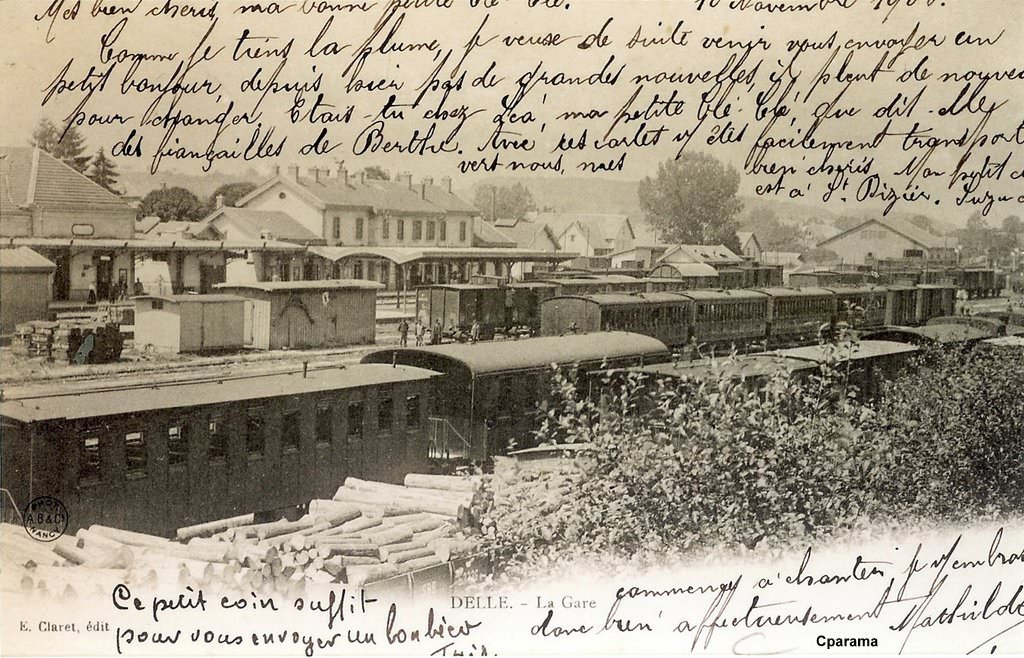 Mes bien chéris, ma bonne petite Clé-Clé. 10 Novembre 1900.
Comme je tiens la plume, je veuse de suite venir vous envoyer un
petit bonjour, depuis hier pas de grandes nouvelles, il pleut de nouveau
pour changer. Etais-tu chez Léa, ma petite Clé-Clé, que dit-elle
des fiançailles de Berthe. Avec ces cartes j'y étés facilement transport
vert nous, mes bien chéris. Mon petit
est à St. Dizier.
E. Claret, édit
DELLE. - La Gare
Ce petit coin suffit
pour vous envoyer un bonbéco
commençy à chanter, je v'embras
donc bien affectueusement Mathilde
PHOT
A.B & C
NANCY
Cparama